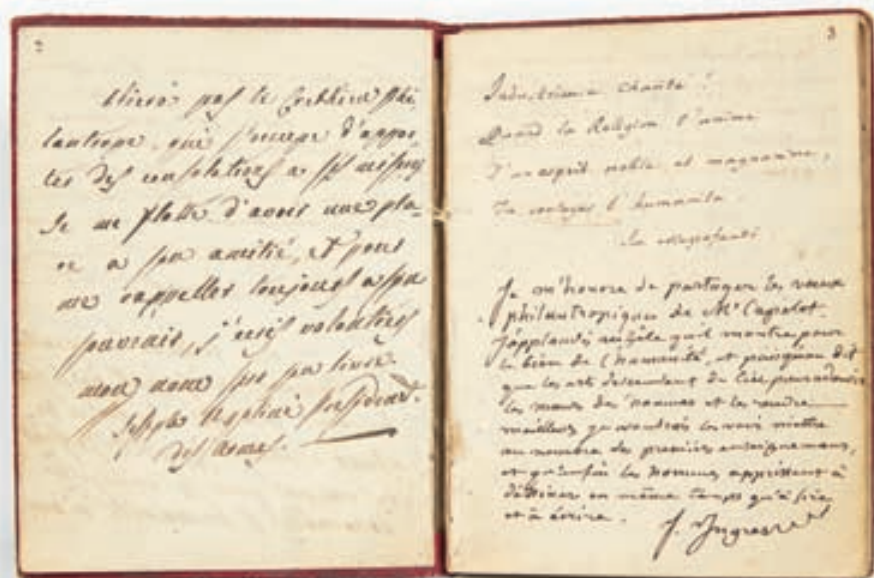 2
pas le
lantrope, qui s'occupe d'appor-
ter des consolations a ses
Je me flatte d'avoir une pla-
ce a son amitié, et pour
me rappeller toujours a son
souvenir, j'ecris volontiers
mon nom sur son livre
Joseph president
des
3
Industrieuse charité!
Quand la Religion t'anime
D'un esprit noble et magnanime,
Tu l'humanité.
Je m'honore de partager les vœux
philantropiques de Mr Cappelot.
J'applaudis au zèle qu'il montre pour
le bien de l'humanité, et puisqu'on dit
que les art descendent du Ciel pour adoucir
les mœurs des hommes et les rendre
meilleurs je voudrais les voir mettre
au nombre des premiers enseignemens,
et qu'enfin les hommes apprissent à
dessiner en même temps qu'à lire
et à écrire.
J. Ingres